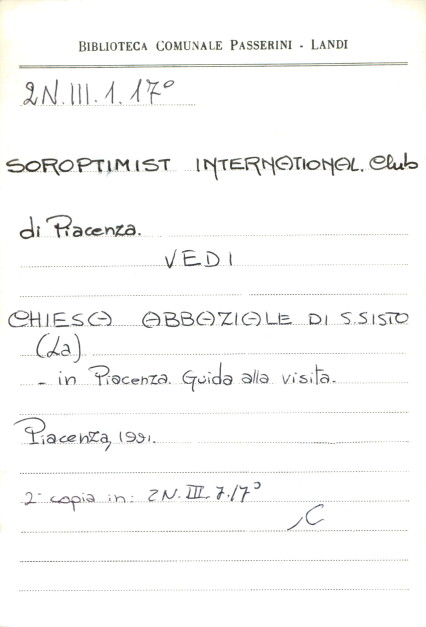 BIBLIOTECA COMUNALE PASSERINI - LANDI
2N.III.1.17°
SOROPTIMIST INTERNATIONAL. Club
di Piacenza.
VEDI
CHIESA ABBAZIALE DI S.SISTO
(La)
- in Piacenza. Guida alla visita.
Piacenza, 1991.
2ª copia in: 2N.III.7.17°